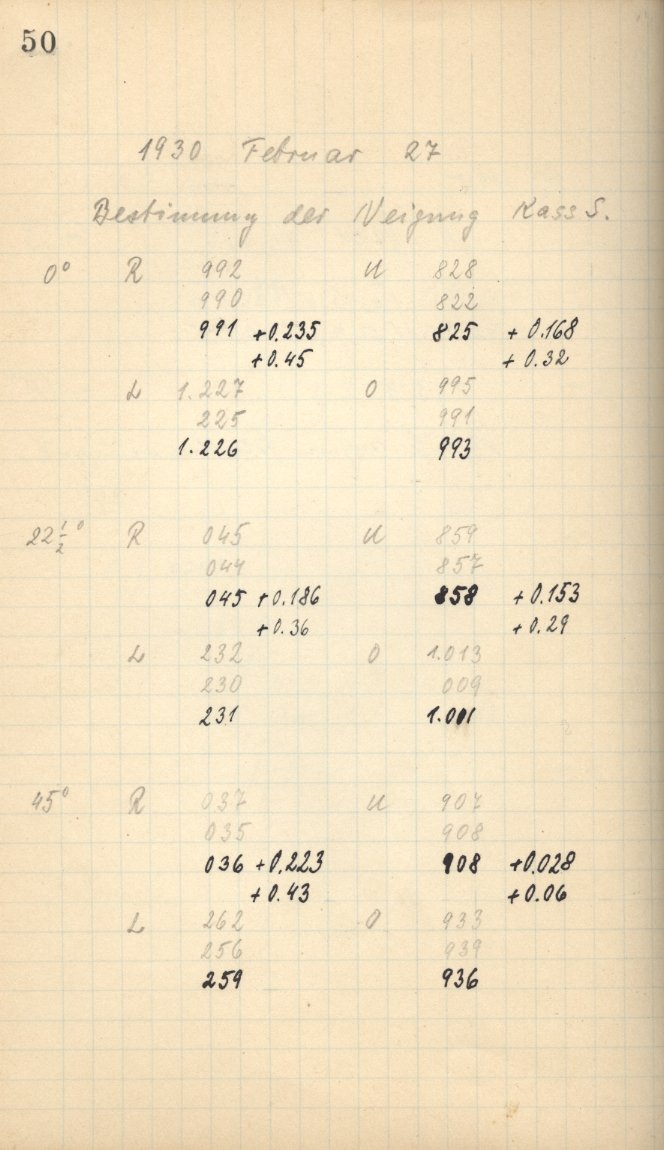 50
1930 Februar 27
Bestimmung der Neigung Kass S.
0° R 992 U 828
990 822
991 +0.235 825 +0.168
+0.45 +0.32
L 1.227 O 995
225 991
1.226 993
22½° R 045 U 859
044 857
045 +0.186 858 +0.153
+0.36 +0.29
L 232 O 1.013
230 009
231 1.001
45° R 037 U 907
035 908
036 +0.223 908 +0.028
+0.43 +0.06
L 262 O 933
256 939
259 936